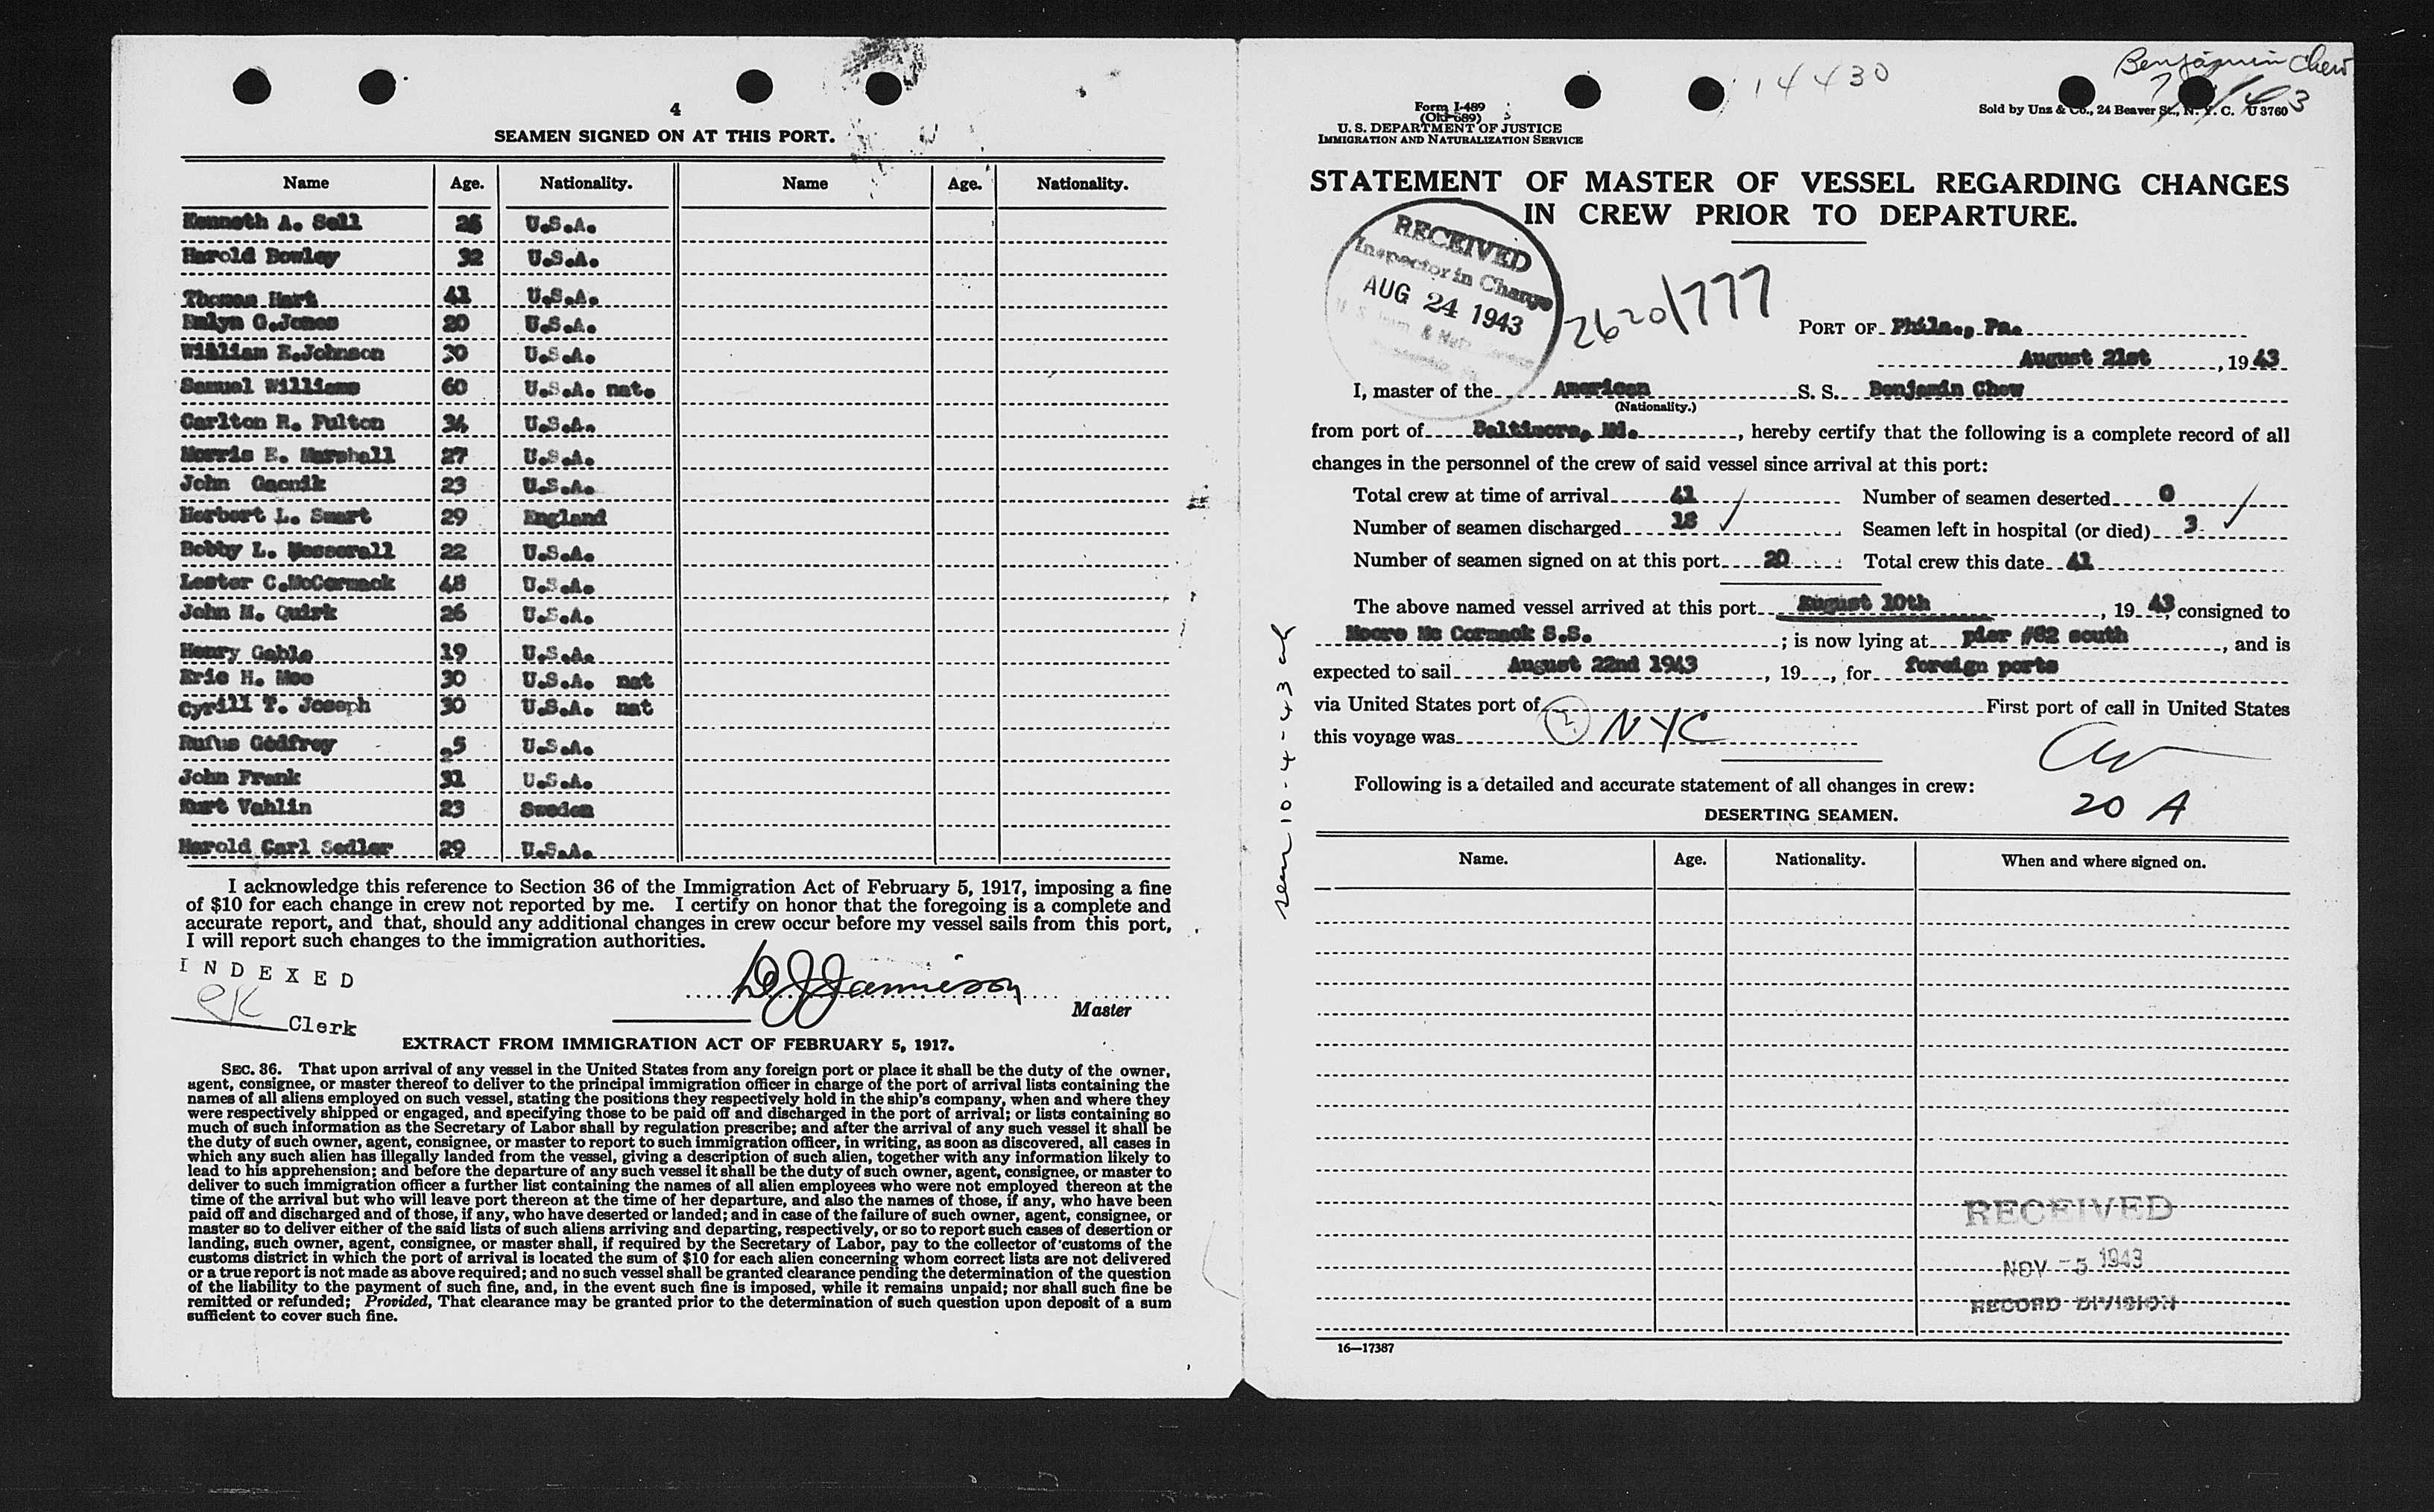 4
SEAMEN SIGNED ON AT THIS PORT.
Name Age. Nationality. Name Age. Nationality.
Kenneth A. Sell 26 U.S.A.
Harold Bowley 32 U.S.A.
Thomas Hart 41 U.S.A.
Emlyn G.Jones 20 U.S.A.
William E.Johnson 30 U.S.A.
Samuel Williams 60 U.S.A. nat.
Carlton R. Fulton 34 U.S.A.
Morris E. Marshall 27 U.S.A.
John Gacnik 23 U.S.A.
Herbert L. Smart 29 England
Bobby L. Messerall 22 U.S.A.
Lester C.McCormack 48 U.S.A.
John M. Quirk 26 U.S.A.
Henry Gable 19 U.S.A.
Eric H. Moe 30 U.S.A. nat
Cyrill T. Joseph 30 U.S.A. nat
Rufus Godfrey 25 U.S.A.
John Frank 31 U.S.A.
Kurt Vahlin 23 Sweden
Harold Carl Sedler 29 U.S.A.
I acknowledge this reference to Section 36 of the Immigration Act of February 5, 1917, imposing a fine
of $10 for each change in crew not reported by me. I certify on honor that the foregoing is a complete and
accurate report, and that, should any additional changes in crew occur before my vessel sails from this port,
I will report such changes to the immigration authorities.
INDEXED
Clerk
Jamieson
Master
EXTRACT FROM IMMIGRATION ACT OF FEBRUARY 5, 1917.
SEC. 36. That upon arrival of any vessel in the United States from any foreign port or place it shall be the duty of the owner,
agent, consignee, or master thereof to deliver to the principal immigration officer in charge of the port of arrival lists containing the
names of all aliens employed on such vessel, stating the positions they respectively hold in the ship's company, when and where they
were respectively shipped or engaged, and specifying those to be paid off and discharged in the port of arrival; or lists containing so
much of such information as the Secretary of Labor shall by regulation prescribe; and after the arrival of any such vessel it shall be
the duty of such owner, agent, consignee, or master to report to such immigration officer, in writing, as soon as discovered, all cases in
which any such alien has illegally landed from the vessel, giving a description of such alien, together with any information likely to
lead to his apprehension; and before the departure of any such vessel it shall be the duty of such owner, agent, consignee, or master to
deliver to such immigration officer a further list containing the names of all alien employees who were not employed thereon at the
time of the arrival but who will leave port thereon at the time of her departure, and also the names of those, if any, who have been
paid off and discharged and of those, if any, who have deserted or landed; and in case of the failure of such owner, agent, consignee, or
master so to deliver either of the said lists of such aliens arriving and departing, respectively, or so to report such cases of desertion or
landing, such owner, agent, consignee, or master shall, if required by the Secretary of Labor, pay to the collector of customs of the
customs district in which the port of arrival is located the sum of $10 for each alien concerning whom correct lists are not delivered
or a true report is not made as above required; and no such vessel shall be granted clearance pending the determination of the question
of the liability to the payment of such fine, and, in the event such fine is imposed, while it remains unpaid; nor shall such fine be
remitted or refunded; Provided, That clearance may be granted prior to the determination of such question upon deposit of a sum
sufficient to cover such fine.
14430
Benjamin Chew
Form I-489
(Old 689)
U. S. DEPARTMENT OF JUSTICE
IMMIGRATION AND NATURALIZATION SERVICE
Sold by Unz & Co., 24 Beaver St., N. Y. C. U 3760
STATEMENT OF MASTER OF VESSEL REGARDING CHANGES
IN CREW PRIOR TO DEPARTURE.
RECEIVED
Inspector in Charge
AUG 24 1943
2620/777
PORT OF Phila., Pa.
August 21st, 1943
I, master of the American S. S. Benjamin Chew
(Nationality.)
from port of Baltimore, Md., hereby certify that the following is a complete record of all
changes in the personnel of the crew of said vessel since arrival at this port:
Total crew at time of arrival 42 Number of seamen deserted 0
Number of seamen discharged 18 Seamen left in hospital (or died) 3
Number of seamen signed on at this port 20 Total crew this date 41
The above named vessel arrived at this port August 10th, 19 43 consigned to
Moore Mc Cormack S.S.; is now lying at pier #82 south, and is
expected to sail August 22nd 1943, 19, for foreign ports
via United States port of First port of call in United States
this voyage was NYC
Following is a detailed and accurate statement of all changes in crew:
20 A
DESERTING SEAMEN.
Name. Age. Nationality. When and where signed on.
seen 10-4-43
RECEIVED
NOV -5 1943
RECORD DIVISION
16—17387